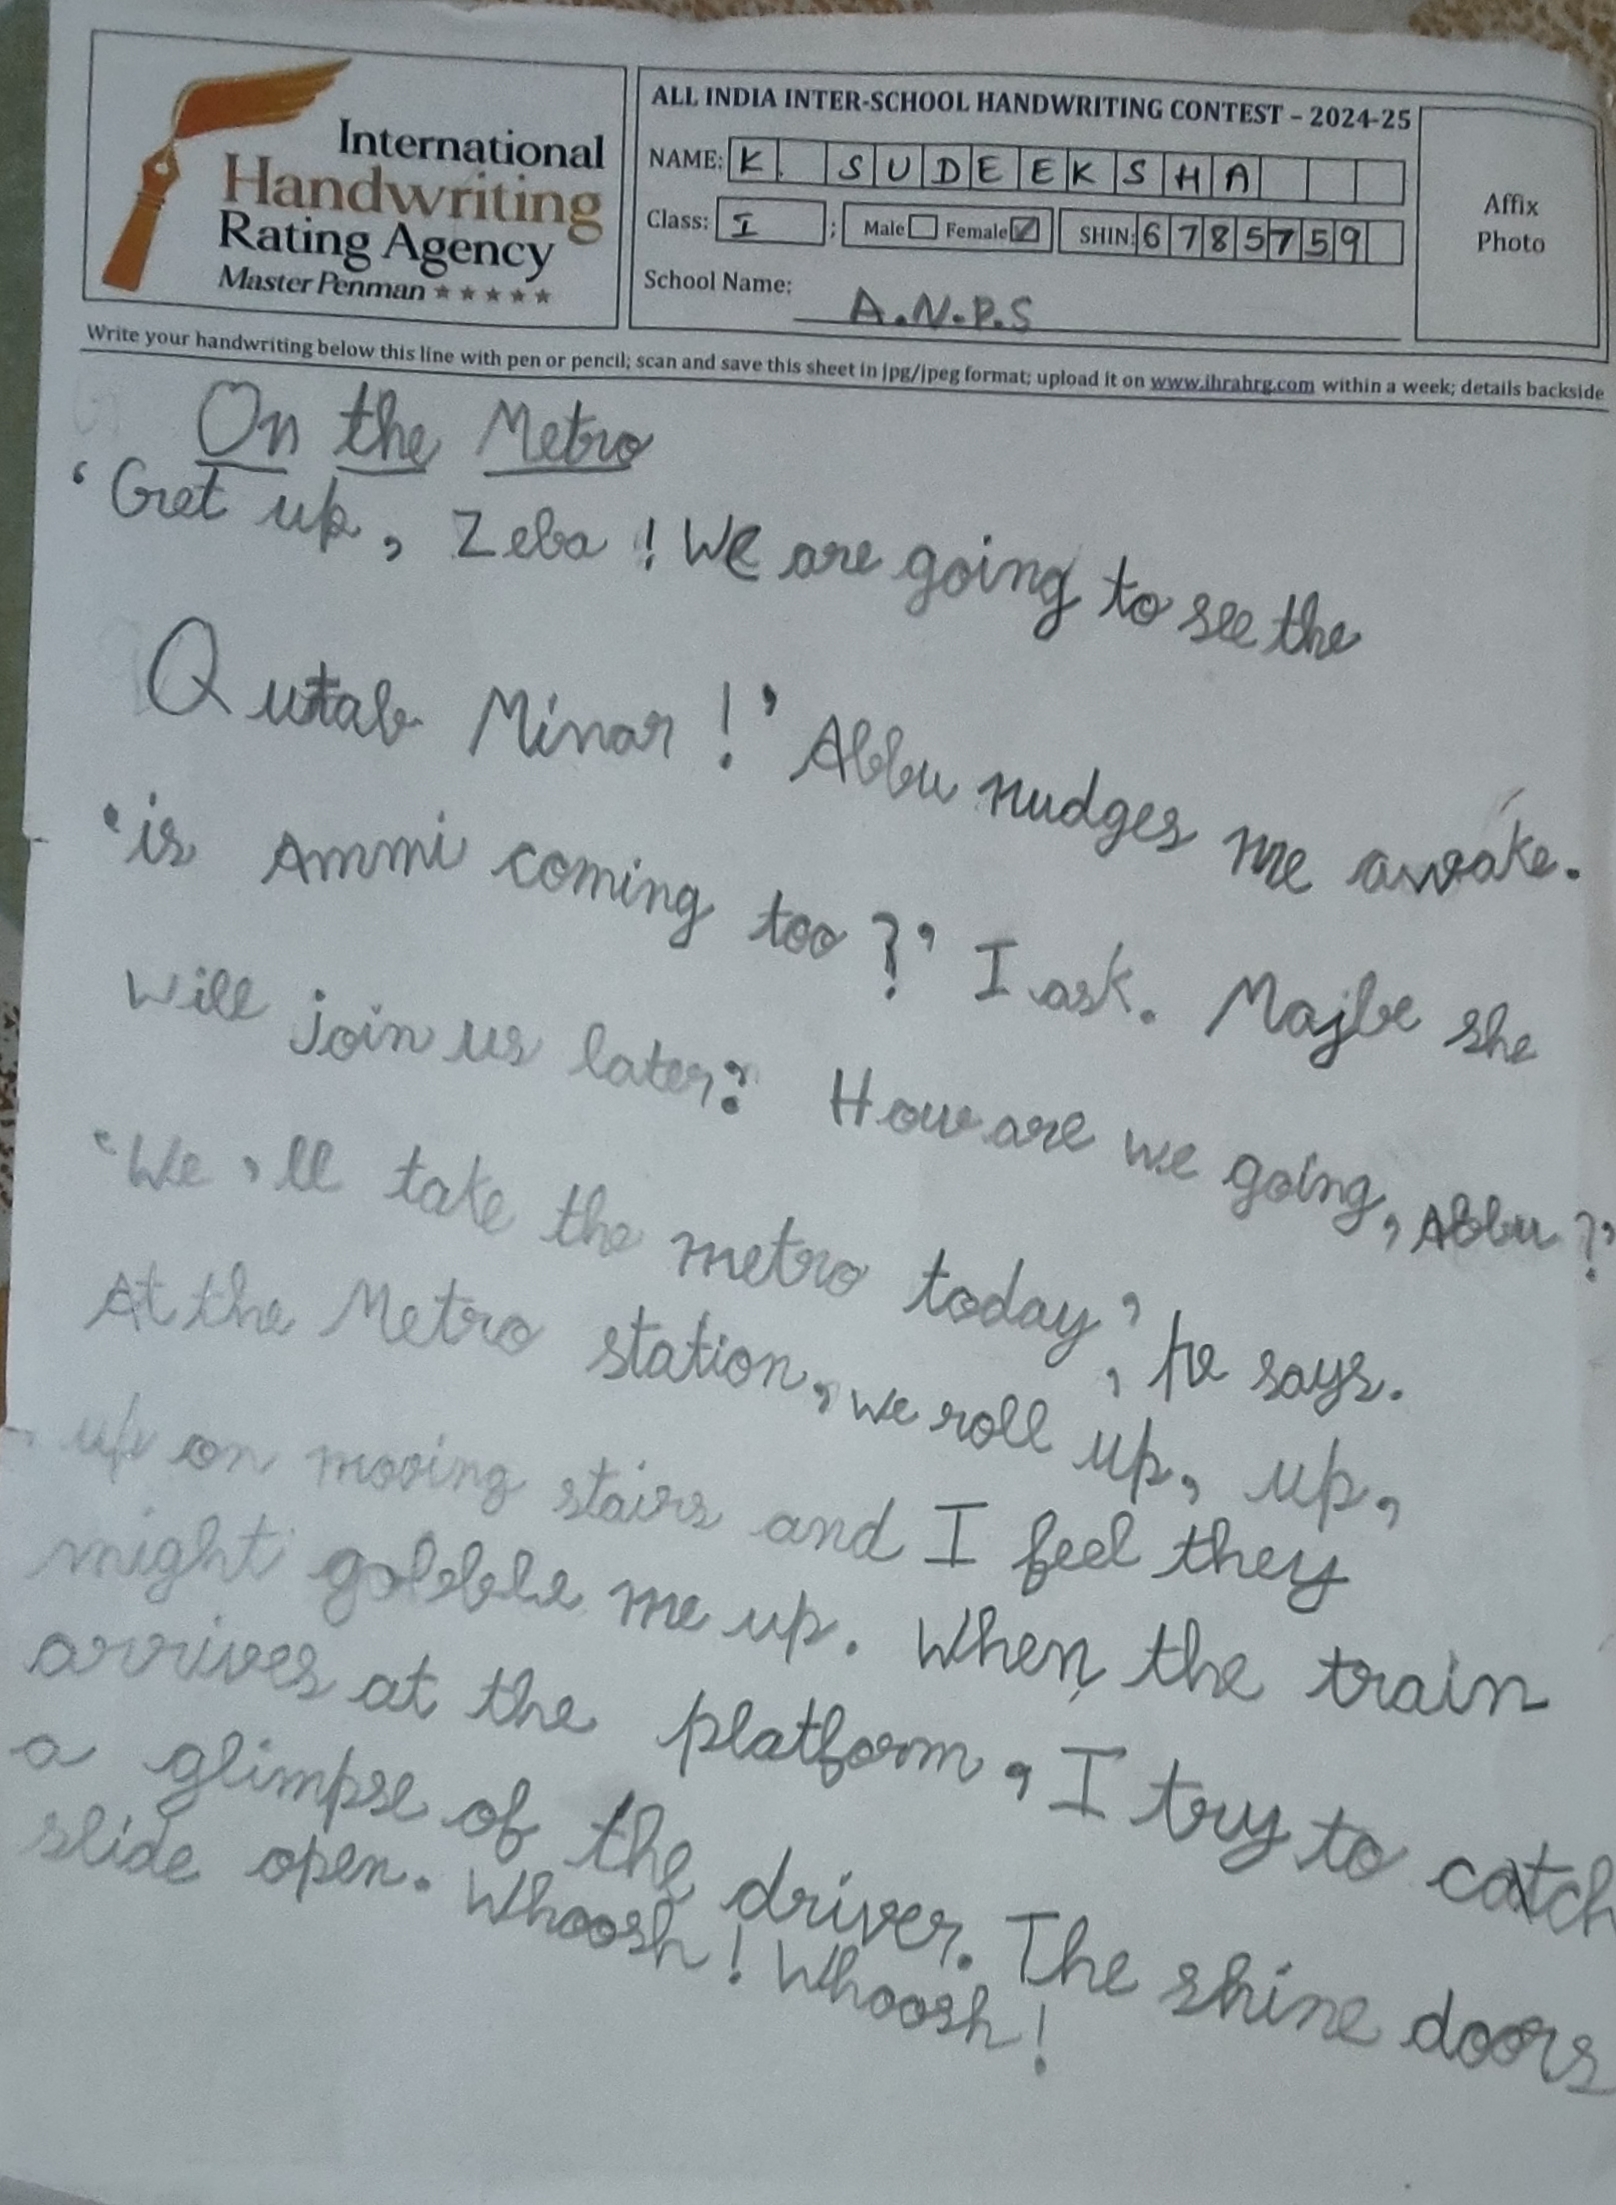 International
Handwriting
Rating Agency
Master Penman ★★★★★
ALL INDIA INTER-SCHOOL HANDWRITING CONTEST – 2024-25
NAME: K. SUDEEKSHA
Class: I ; Male Female ✓ SHIN: 6785759
School Name: A.N.P.S
Affix
Photo
Write your handwriting below this line with pen or pencil; scan and save this sheet in jpg/jpeg format; upload it on www.ihrahrg.com within a week; details backside
On the Metro
‘Get up, Zeba! We are going to see the
Qutab Minar!’ Abbu nudges me awake.
‘is Ammi coming too?’ I ask. Maybe she
will join us later? How are we going, Abbu?’
‘We’ll take the metro today’, he says.
At the Metro station, we roll up, up,
up on moving stairs and I feel they
might gobbble me up. When the train
arrives at the platform, I try to catch
a glimpse of the driver. The shine doors
slide open. Whoosh! Whoosh!